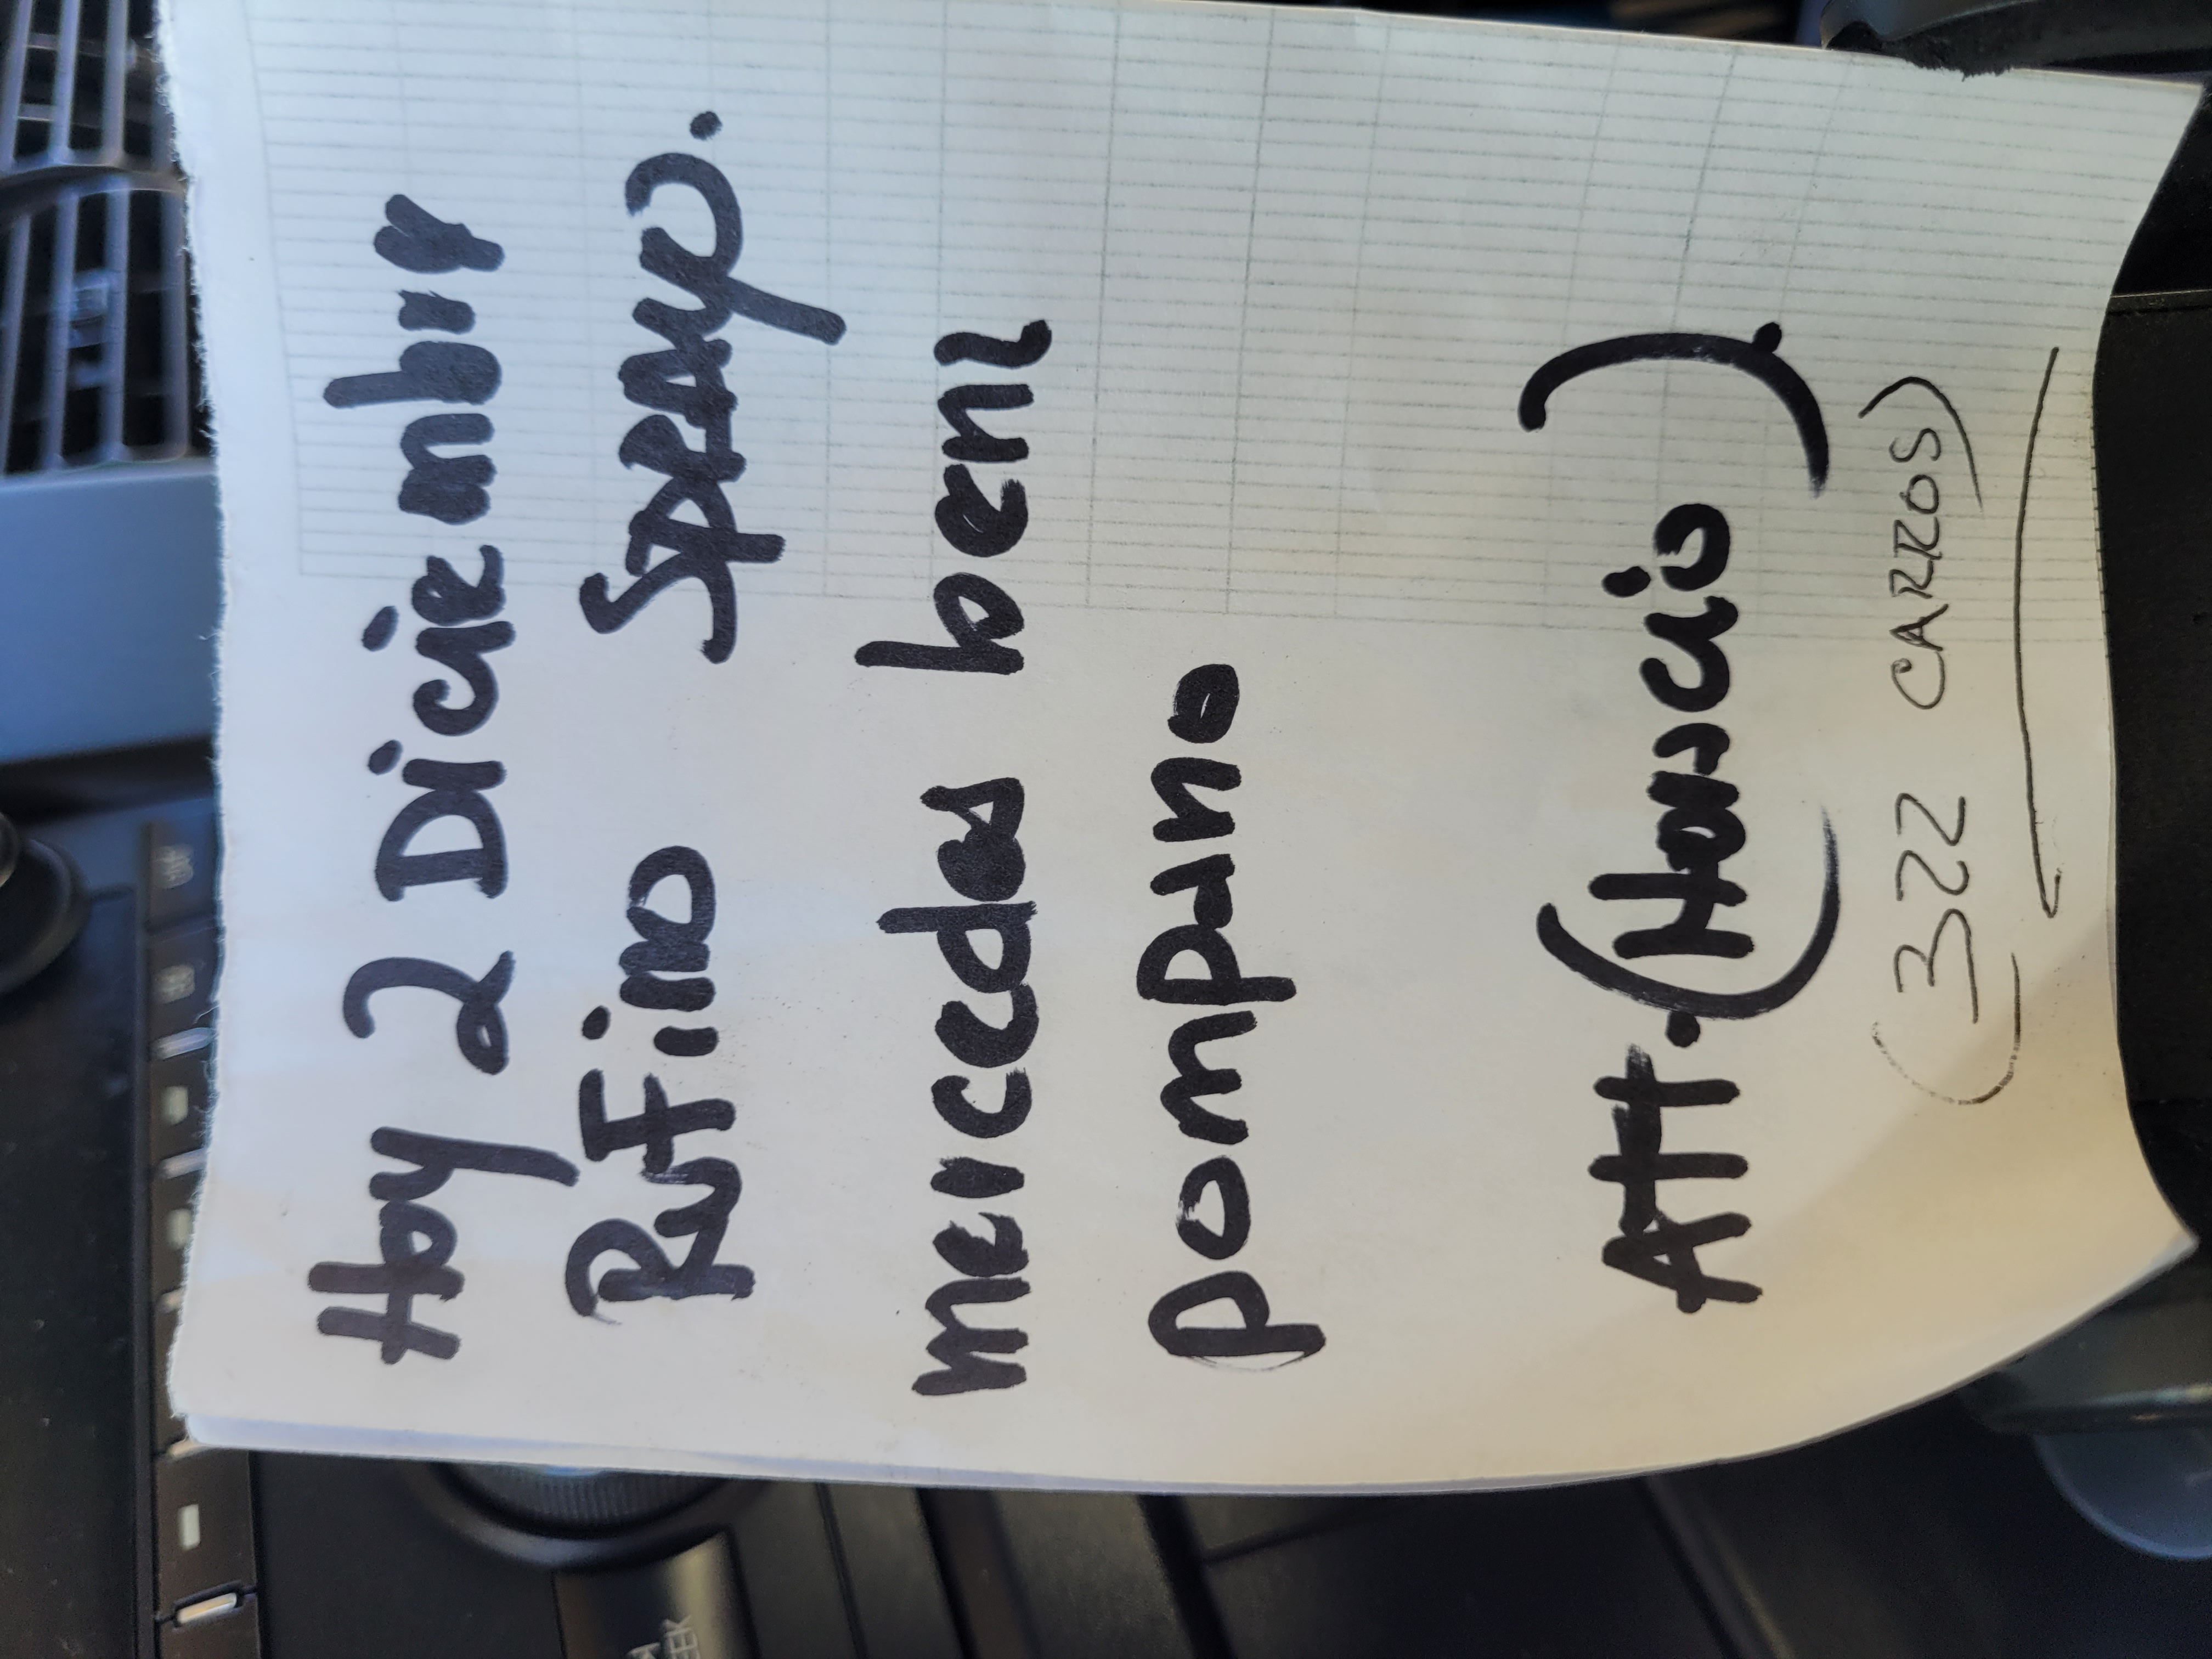 Hoy 2 Diciembre
RuFino SPRAYO.
mercedes benz
pompano
ATT. (Horacio).
(322 CARROS)